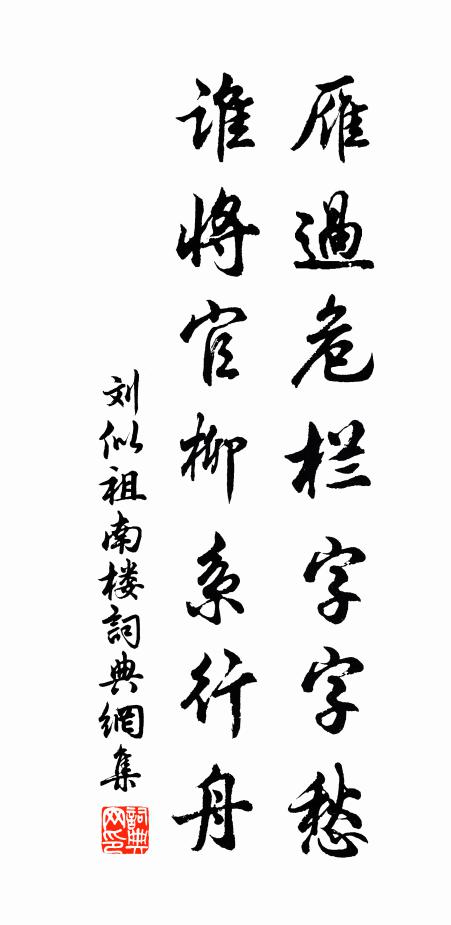 雁過危栏字字愁
谁將官柳系行舟
刘似祖南楼詞典網集
詞典网印